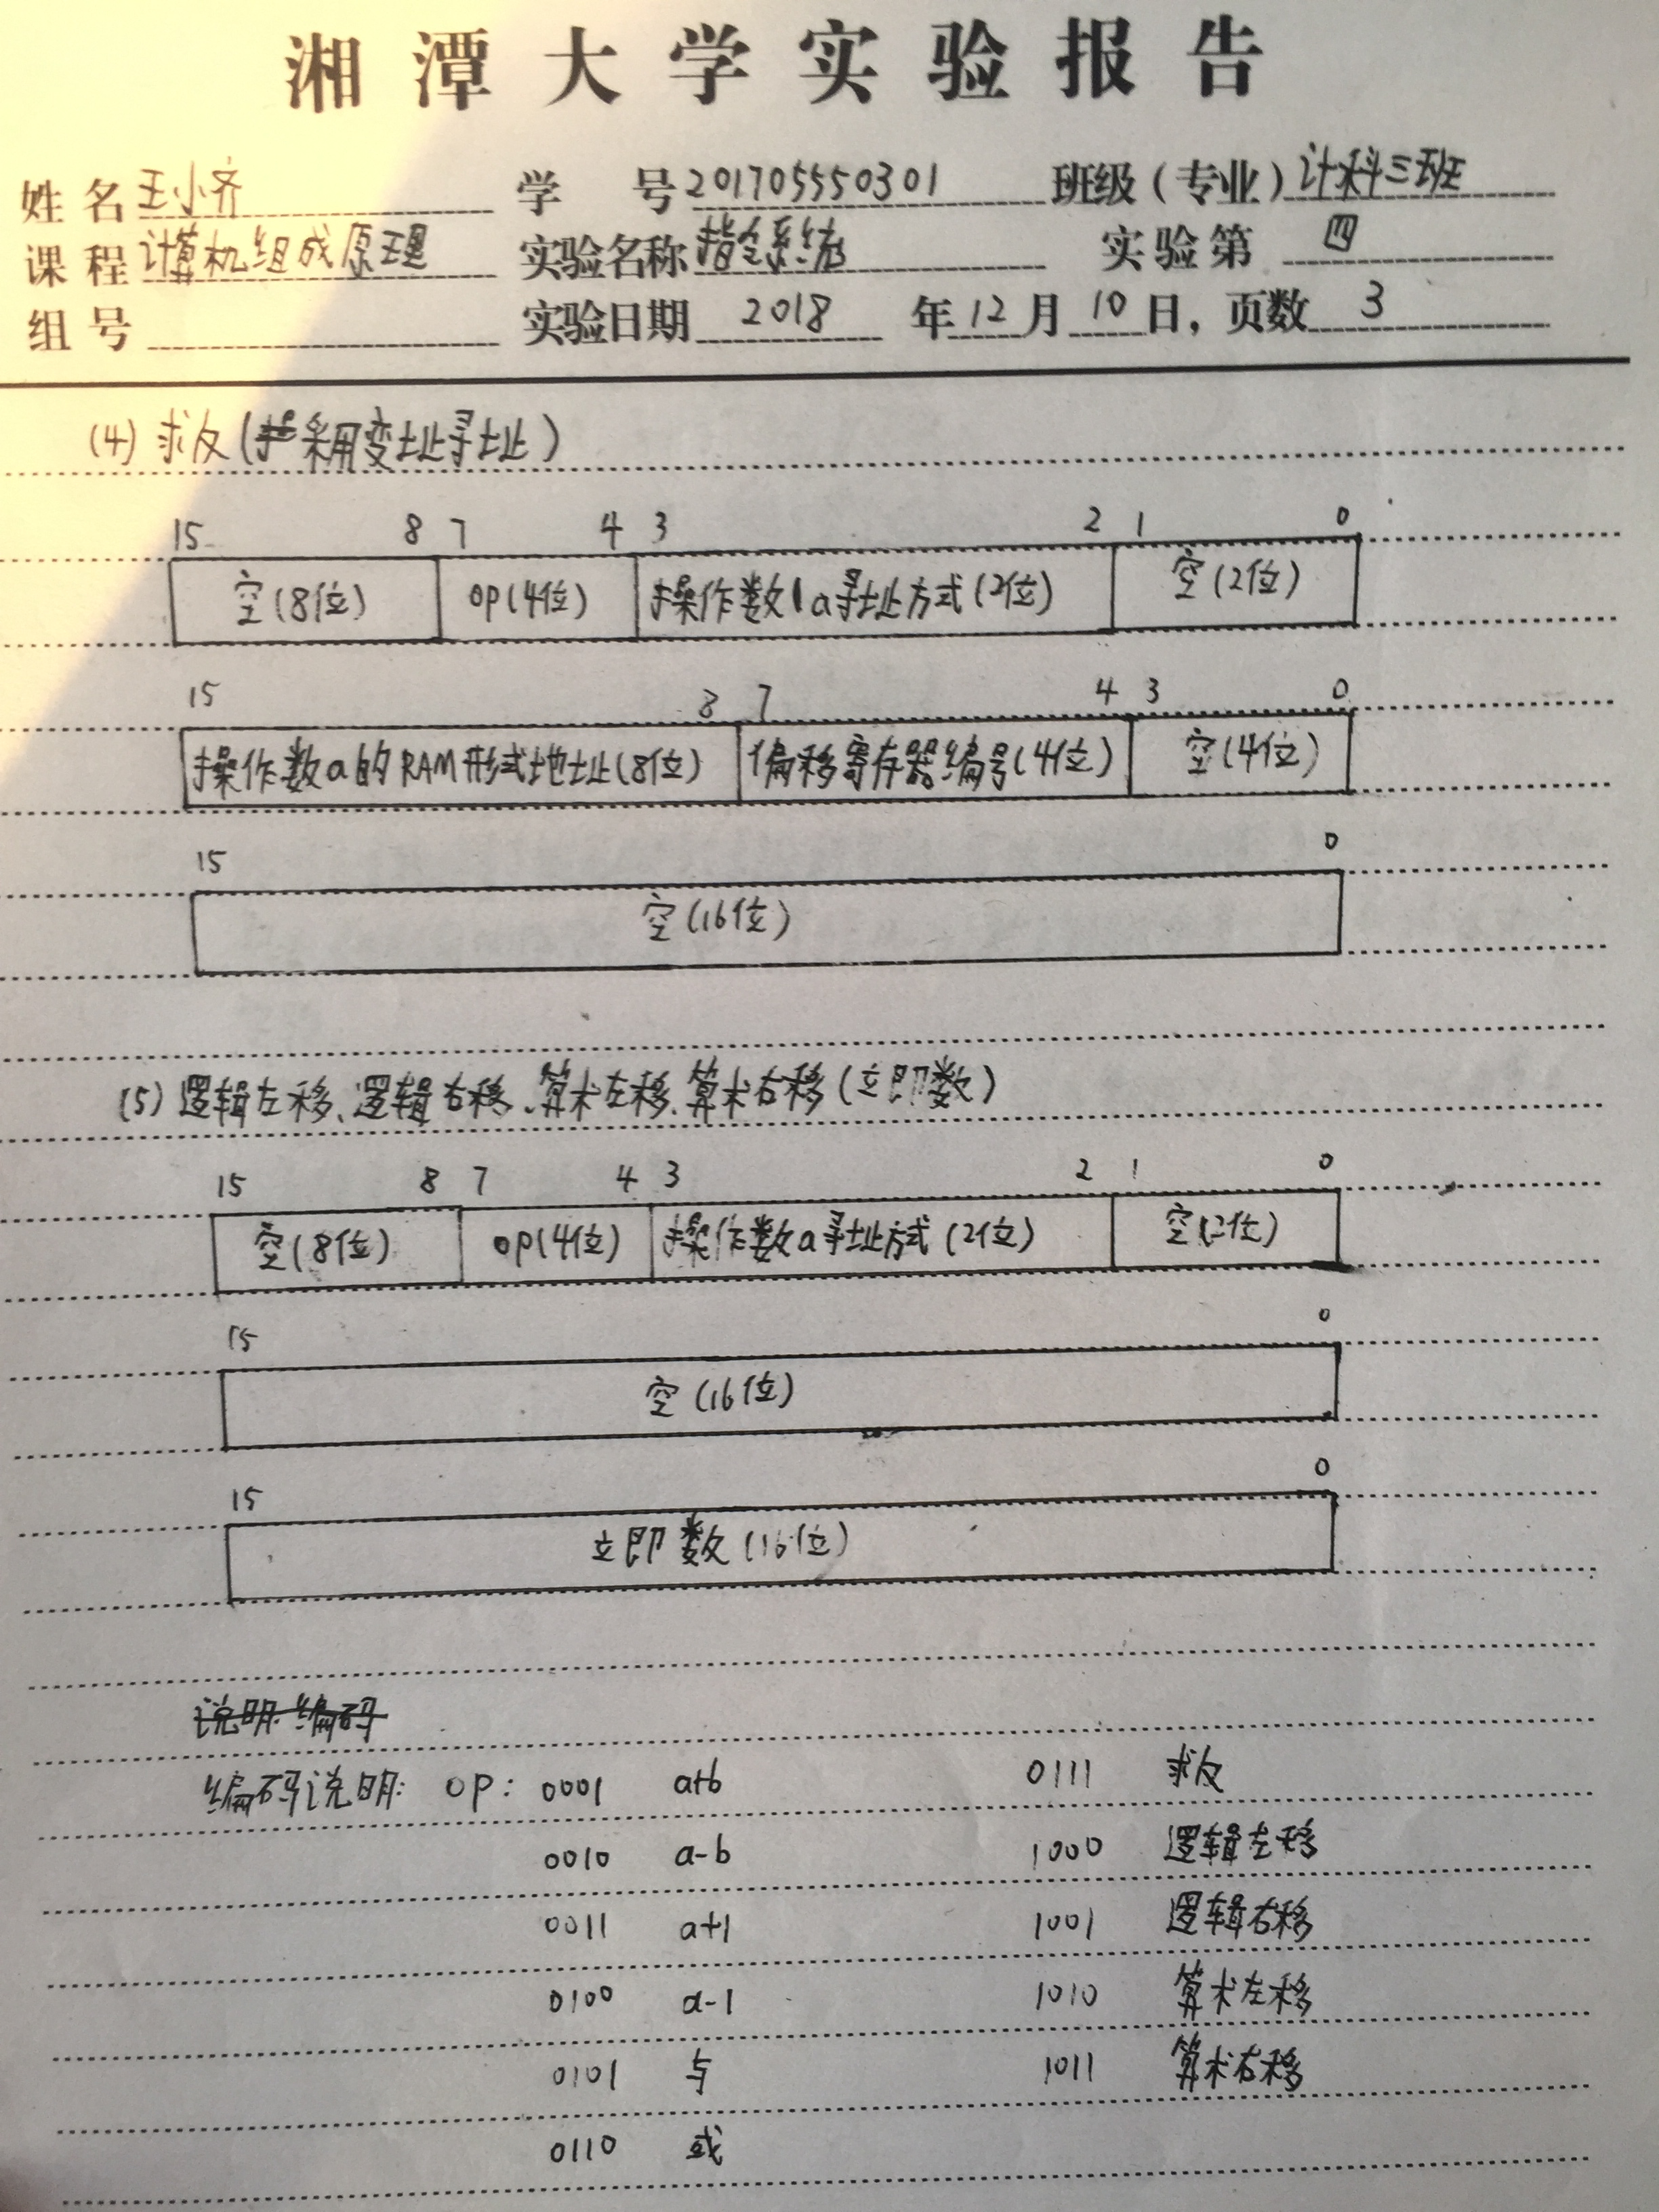 湘潭大学实验报告
姓名 王小齐 学号 201705550301 班级（专业）计科三班
课程 计算机组成原理 实验名称 指令系统 实验第 四
组号 实验日期 2018 年 12 月 10 日，页数 3
(4) 求反(采用变址寻址)
15 8 7 4 3 2 1 0
空(8位) op(4位) 操作数1a寻址方式(2位) 空(2位)
15 8 7 4 3 0
操作数a的RAM形式地址(8位) 偏移寄存器编号(4位) 空(4位)
15 0
空(16位)
(5) 逻辑左移、逻辑右移、算术左移、算术右移(立即数)
15 8 7 4 3 2 1 0
空(8位) op(4位) 操作数a寻址方式(2位) 空(2位)
15 0
空(16位)
15 0
立即数(16位)
说明:编码
编码说明: op: 0001 a+b 0111 求反
0010 a-b 1000 逻辑左移
0011 a+1 1001 逻辑右移
0100 a-1 1010 算术左移
0101 与 1011 算术右移
0110 或